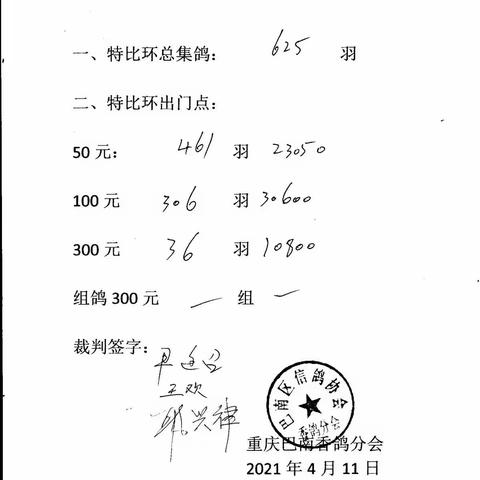 一、特比环总集鸽: 625 羽
二、特比环出门点:
50 元: 461 羽 23050
100 元 306 羽 30600
300 元 36 羽 10800
组鸽 300 元 — 组 —
裁判签字:
王欢
兴律
巴南区信鸽协会
香鸽分会
重庆巴南香鸽分会
2021 年 4 月 11 日